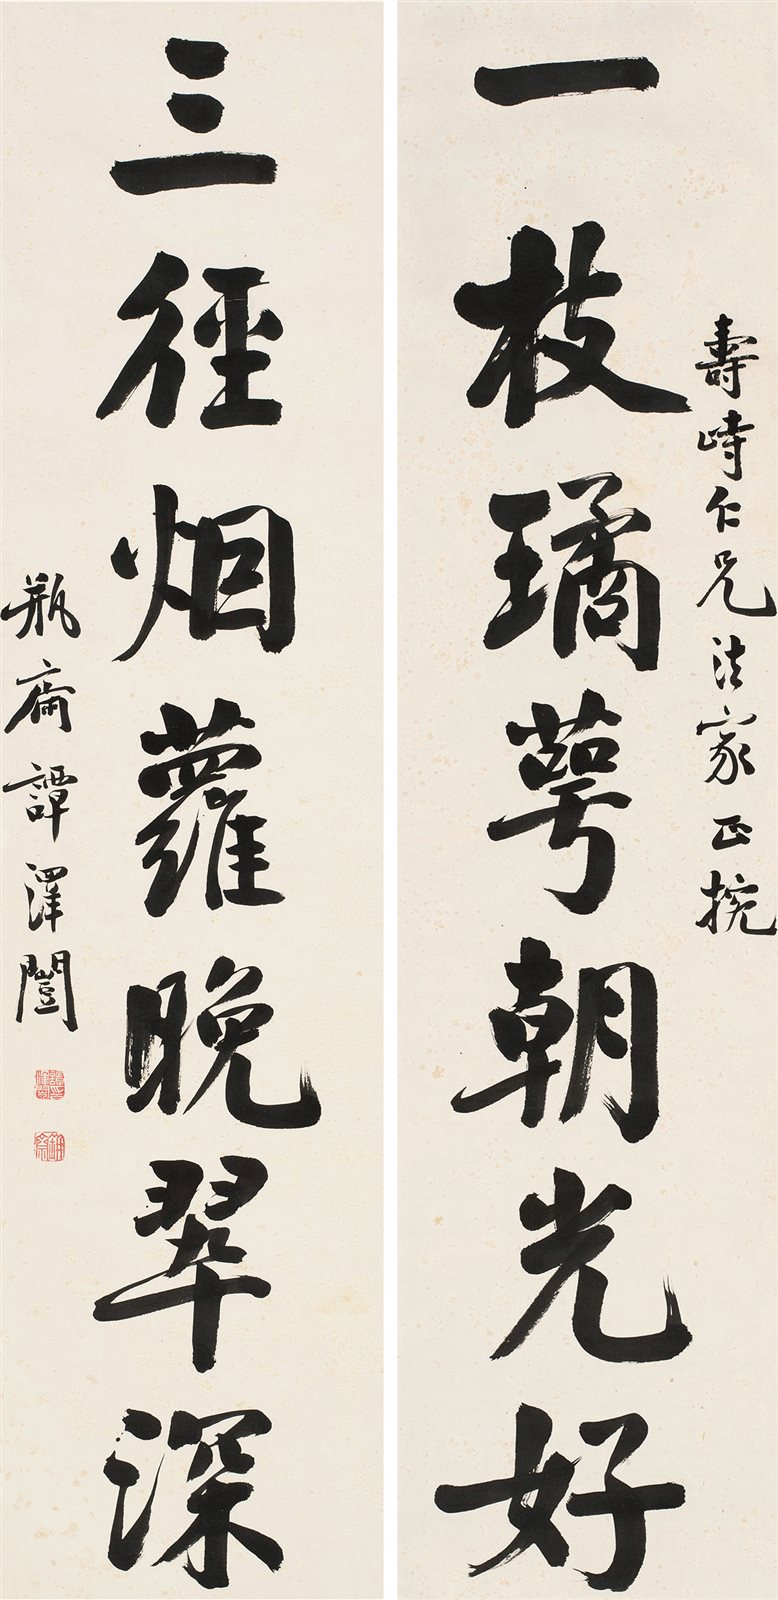 壽峙仁兄法家正捥
一枝璚萼朝光好
三徑烟蘿晚翠深
瓶齋譚澤闓